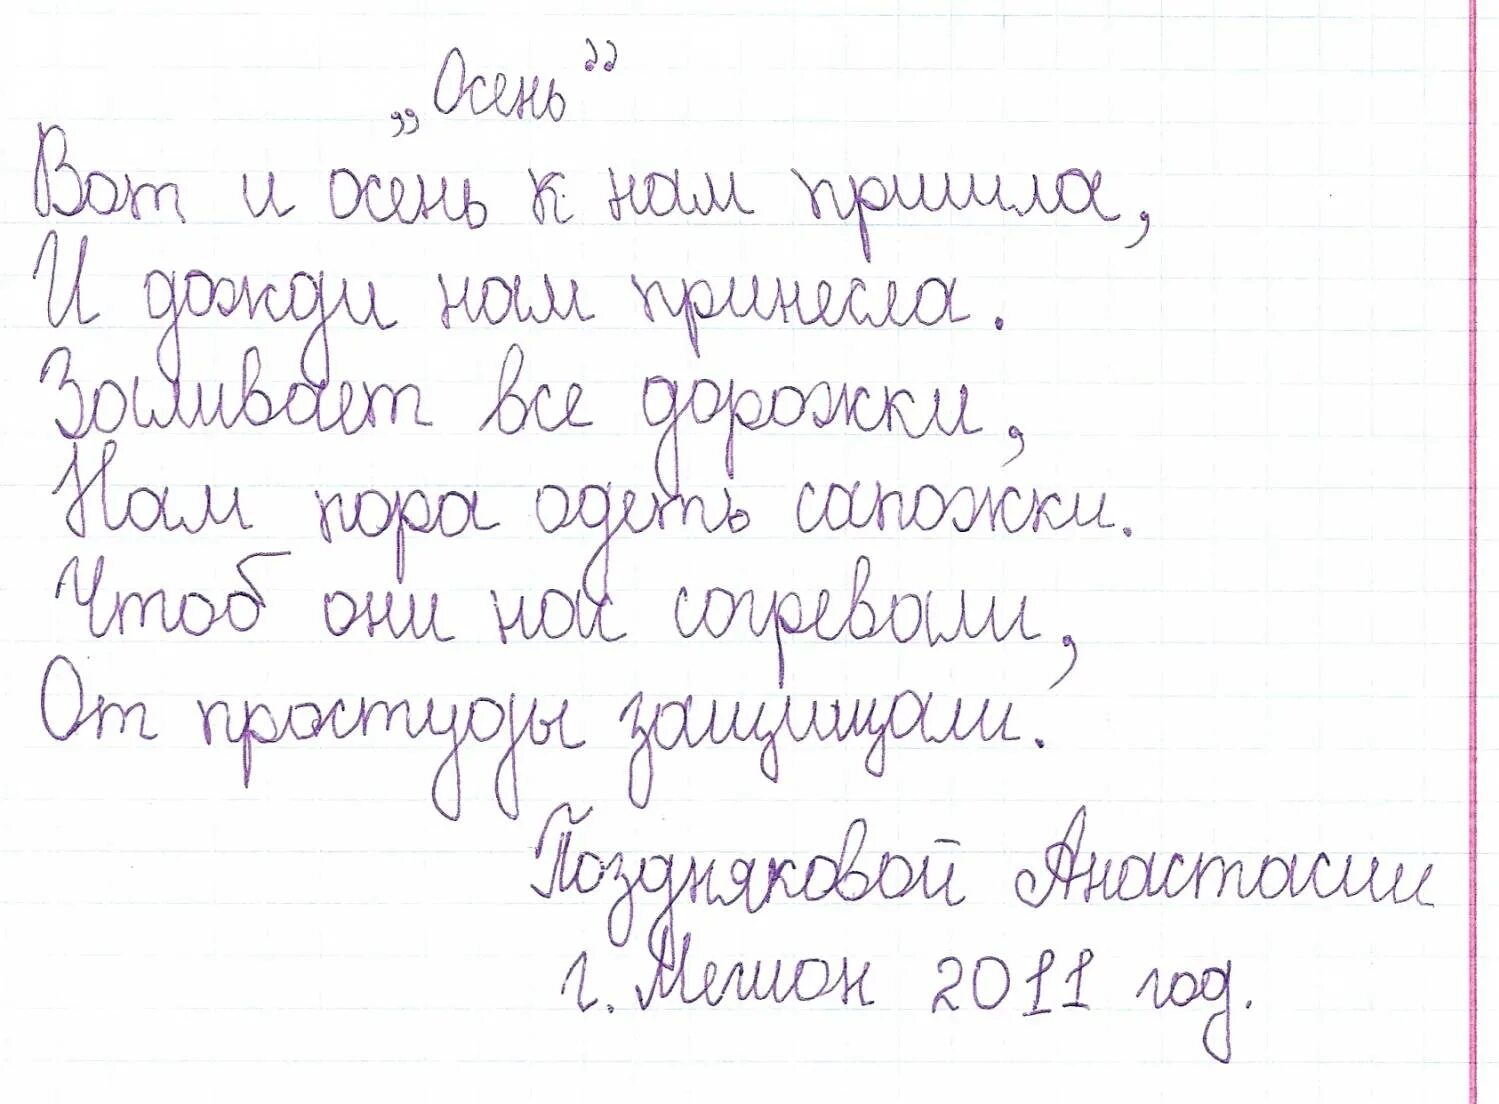 „Осень"
Вот и осень к нам пришла,
И дожди нам принесла.
Заливает все дорожки,
Нам пора одеть сапожки.
Чтоб они нас согревали,
От простуды защищали.
Поздняковой Анастасии
г. Мегион 2011 год.